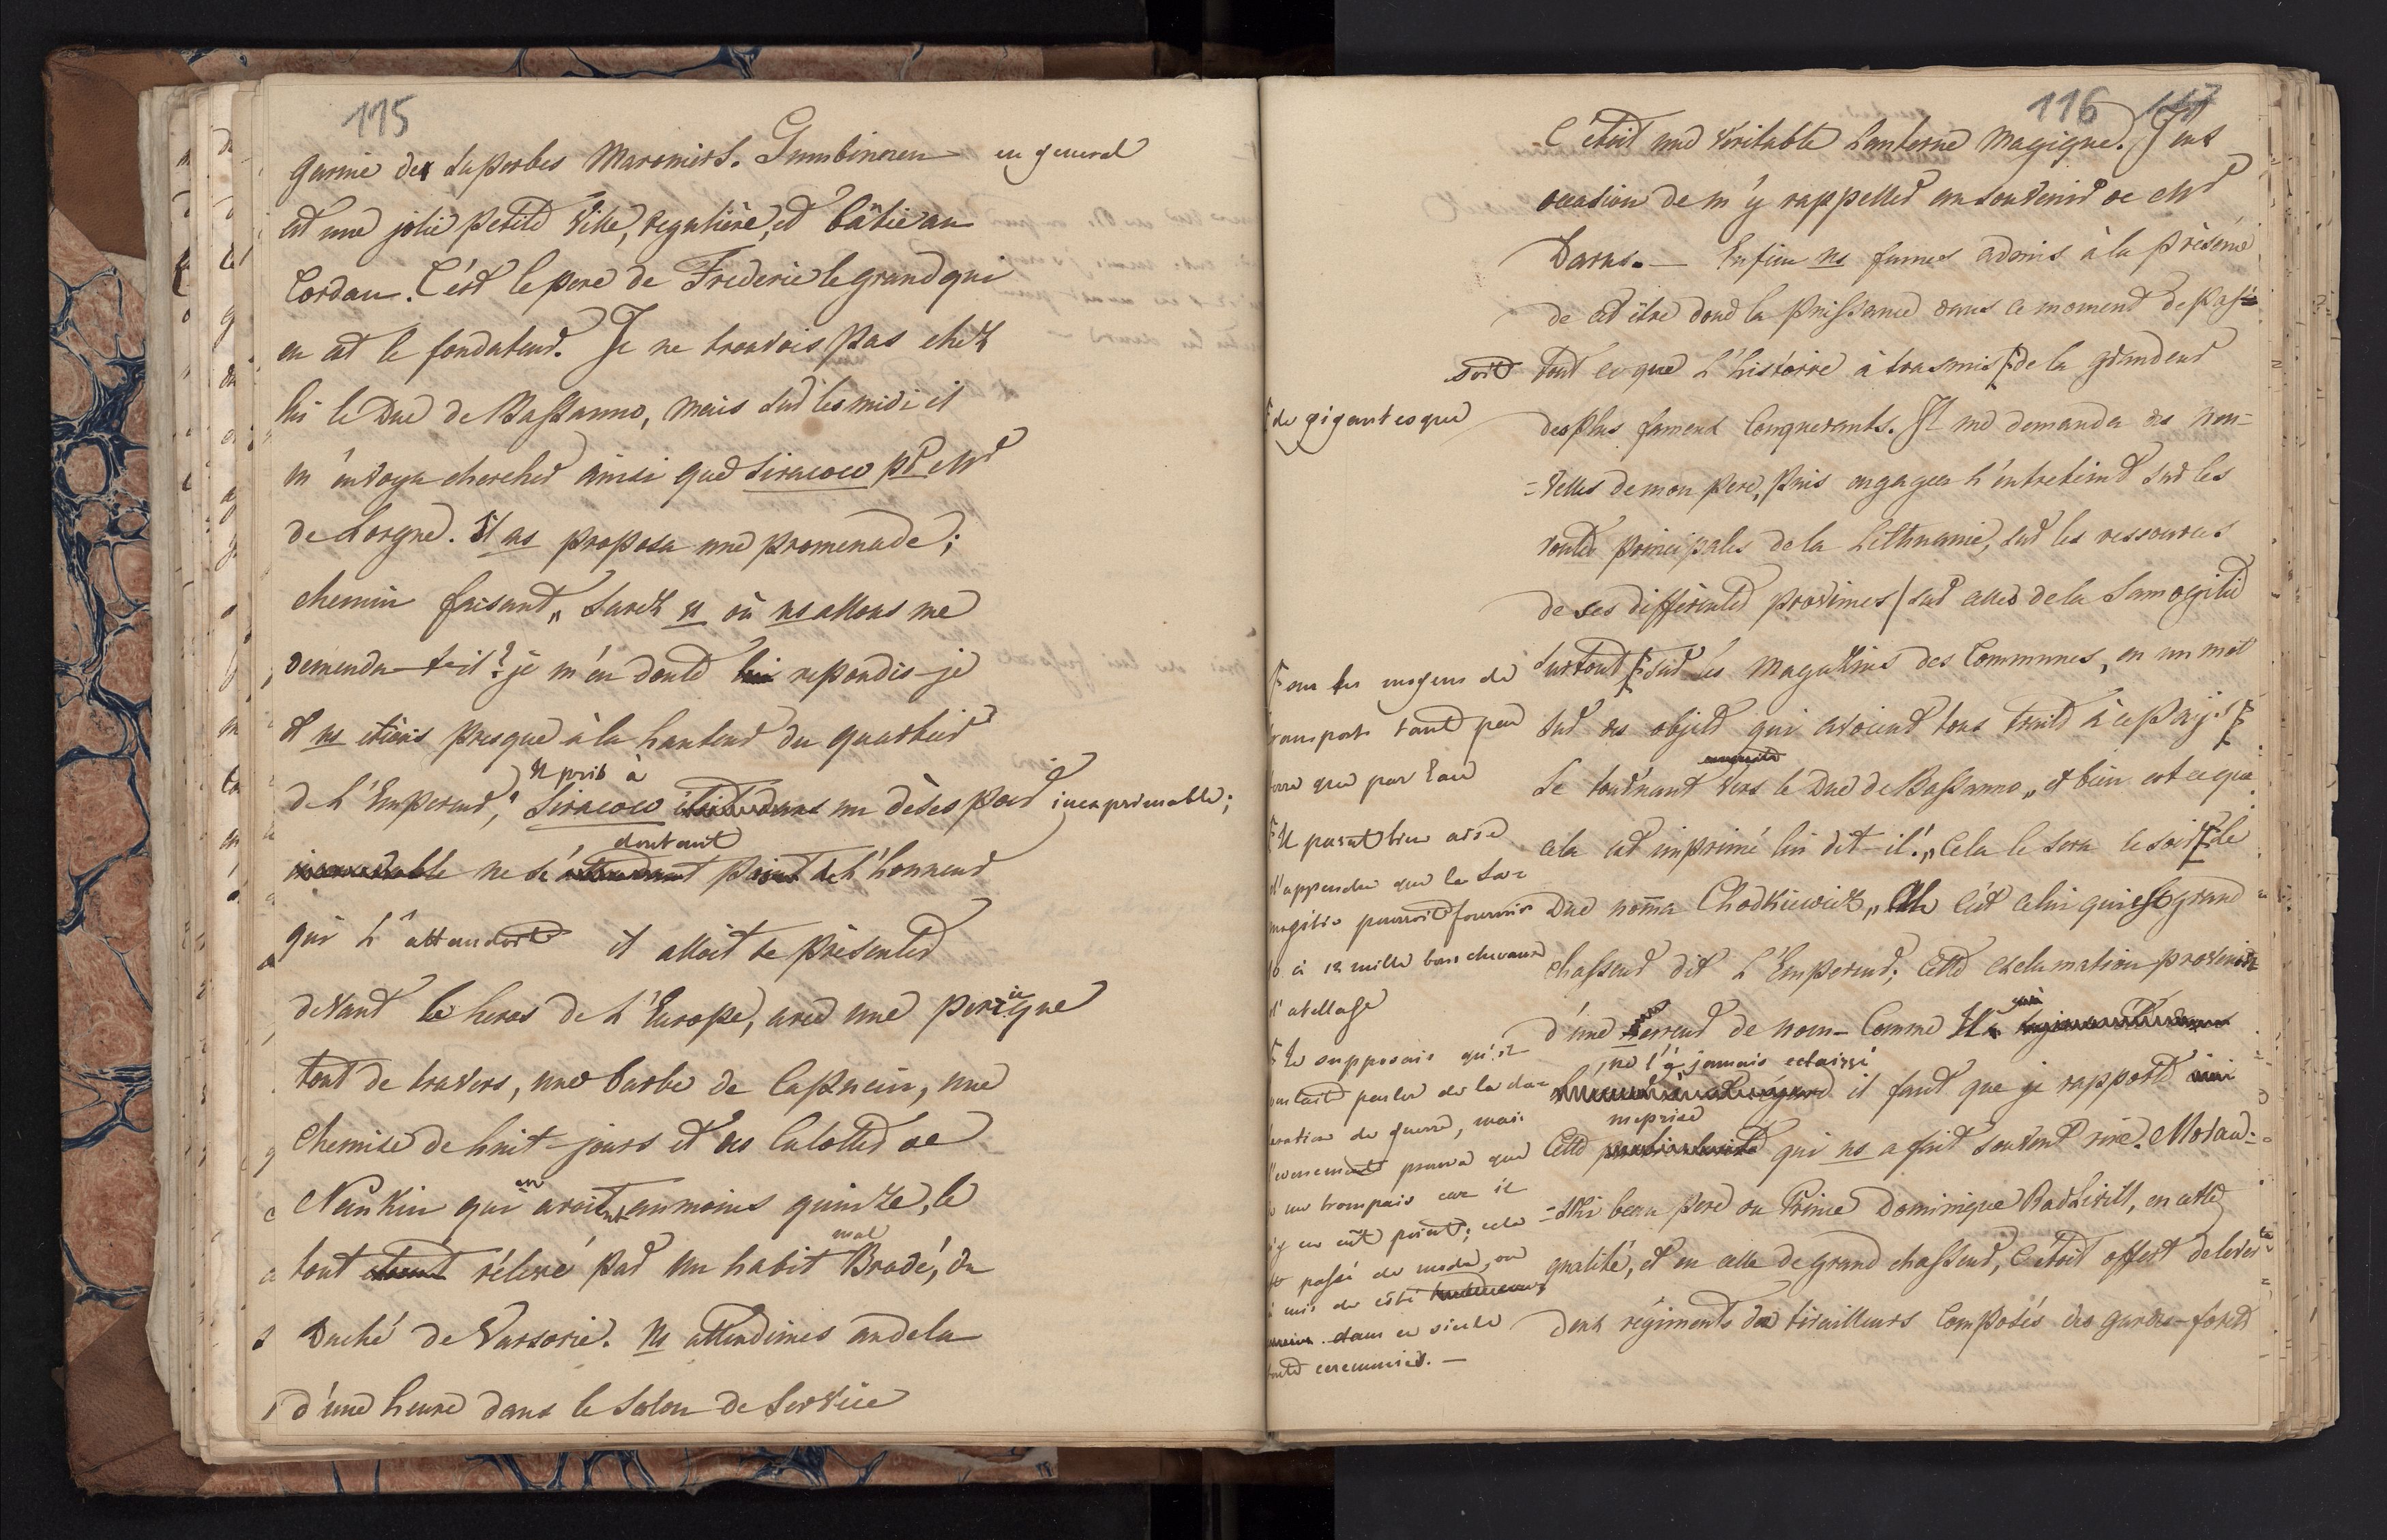 115
garnie des superbes Maroniers. Gumbinnen en general
est une jolie petite Ville, reguliére, et bâtie au
Cordau. C'ést le pere de Frederic le grand qui
en est le fondateur. Je ne trouvois pas chéz
lui le Duc de Bassanno, mais sur les midi il
m'envoya chercher ainsi que Siracow pr Mr
de Lorgne. Il ns proposa une promenade;
chemin faisant „ Savéz vs où ns allons me
demenda-t-il? je m'en doute lui repondis-je
et ns étions presque à la hauteur du quartier
Il prit à
de L'Empereur," Siracow étoit dans un désespoir inexprimable;
doutant
ne s'attendant point de L'honneur
qui L'attendoit il alloit se présenter
devant le heros de L'Europe, avec une perique
tout de travers, une barbe de Capucin, une
Chemise de huit-jours et des Culottes de
en
Nankin qui avoit au moins quinze, le
mal
tout étoient rélévé par un habit Brodé, du
Duché de Varsovie. Ns attendimes audela
d'une heure dans le Salon de Service
116 117
C'étoit une véritable Lanterne Magique. J'eus
occasion de m'y rappeller au souvenir de Mr
Darus. — Enfin ns fumes admis à la présence
de cet être dont la puissance dans ce moment dépas-
soit tout ce que L'histoire à trasmis de la grandeur
de gigantesque
des plus fameux Conquerants. Il me demanda des nou-
=velles de mon pere, puis engagea L'entretient sur les
routes principales de la Lithuanie, sur les ressources
de ses différentes provinces / sur celles de la Samogitie
surtout sur les Magazins des Communes, en un mot
sur les moyens de
transports tant par
terre que par Eau
sur des objets qui avoient tous trait à ce païs.
Se tournant vers le Duc de Bassanno „ et bien est ce que
cela est imprimé lui dit-il! „ Cela le sera le soir le
Il parut bien aise
d'apprendre que la Sa-
mogitie pourroit fournir
10 à 12 mille bons chevaux
d'attellage
Duc nom̄a Chodkiewicz „ Ah c'est celui qui est grand
chasseur dit L'Empereur; cette exclamation provenoit
d'une erreur de nom — Comme
ne l'a jamais eclairci
il faut que je rapporte ici
meprise
Cette particularité qui ns a fait souvent rire. Morau-
=ski beau pere du Prince Dominique Radzivill, en cette
qualité, et en celle de grand chasseur, s'étoit offert de lever
deux régiments de tirailleurs Composés des gardes-forets
Je supposais qu'il
vouloit parler de la dec-
laration de guerre, mais
l'evenement prouva que
je me trompais car il
n'y en eût point; cela
est passé de mode, on
a mis de côté
dans ce siecle
toute ceremonies. —